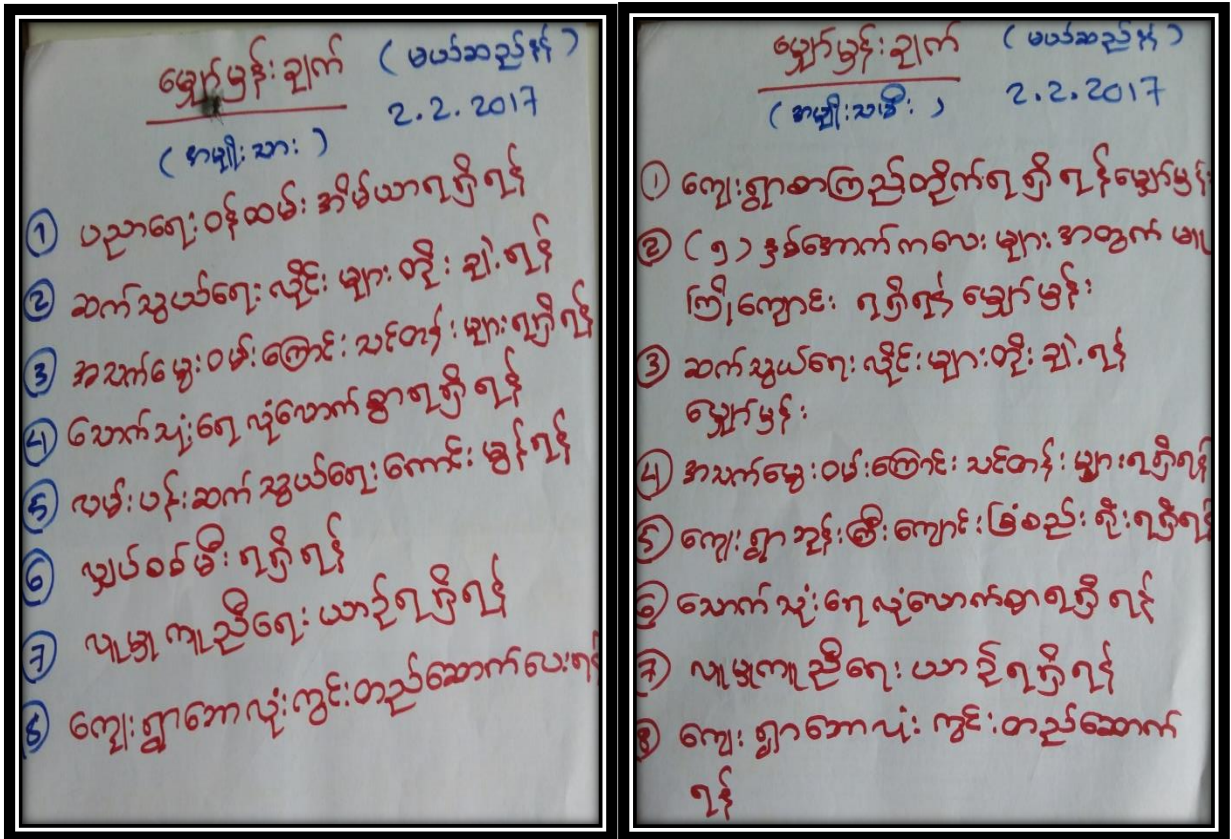 မျှော်မှန်းချက် (မယ်ဆည်နန်)
2.2.2017
(အမျိုးသား)
① ပညာရေးဝန်ထမ်းအိမ်ယာရရှိရန်
② ဆက်သွယ်ရေးလိုင်းများတိုးချဲ့ရန်
③ အသက်မွေးဝမ်းကြောင်းသင်တန်းများရရှိရန်
④ သောက်သုံးရေလုံလောက်စွာရရှိရန်
⑤ လမ်းပန်းဆက်သွယ်ရေးကောင်းမွန်ရန်
⑥ လျှပ်စစ်မီးရရှိရန်
⑦ လူမှုကူညီရေးယာဉ်ရရှိရန်
⑧ ကျေးရွာဘောလုံးကွင်းတည်ဆောက်ပေးရန်
မျှော်မှန်းချက် (မယ်ဆည်နန်)
2.2.2017
(အမျိုးသမီး)
① ကျေးရွာစာကြည့်တိုက်ရရှိရန်မျှော်မှန်း
② (၅) နှစ်အောက်ကလေးများအတွက် မူ
ကြိုကျောင်း ရရှိရန် မျှော်မှန်း
③ ဆက်သွယ်ရေးလိုင်းများတိုးချဲ့ရန်
မျှော်မှန်း
④ အသက်မွေးဝမ်းကြောင်းသင်တန်းများရရှိရန်
⑤ ကျေးရွာဘုန်းကြီးကျောင်းခြံစည်းရိုးရရှိရန်
⑥ သောက်သုံးရေလုံလောက်စွာရရှိရန်
⑦ လူမှုကူညီရေးယာဉ်ရရှိရန်
⑧ ကျေးရွာဘောလုံးကွင်းတည်ဆောက်
ရန်